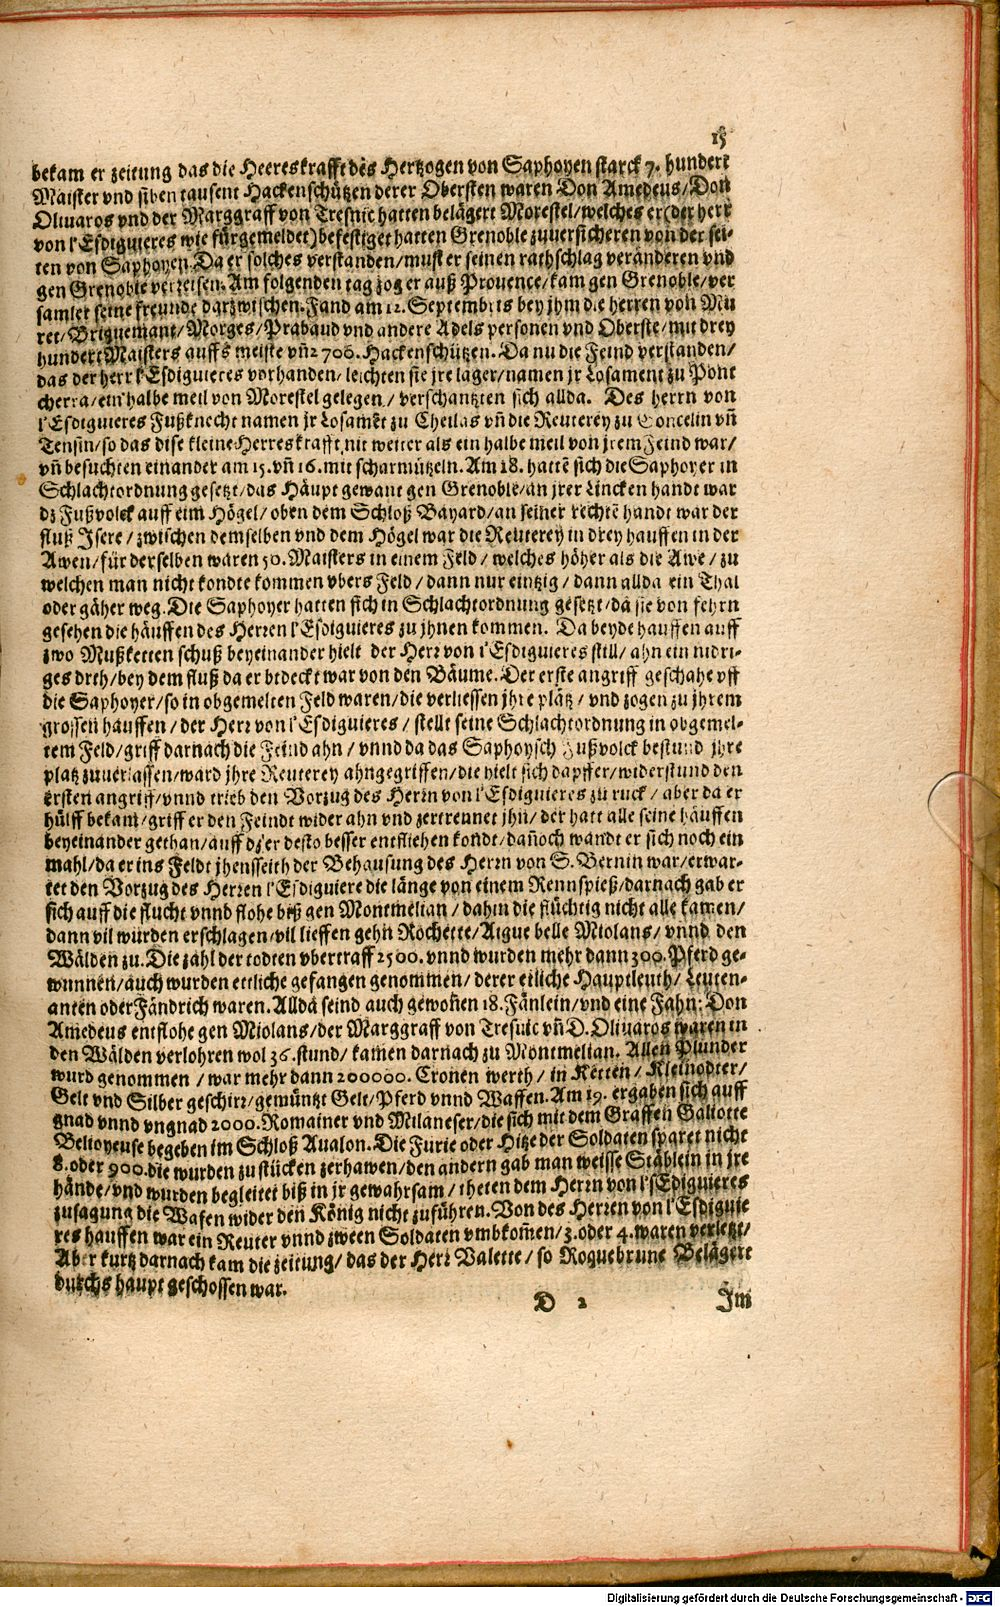 15
bekam er zeitung das die Heereskrafft des Hertzogen von Saphoyen starck 7. hundert
Maister vnd siben tausent Hackenschützen derer Obersten waren Don Amedeus/Don
Oliuaros vnd der Marggraff von Tresnic hatten belägert Morestel/welches er(der herr
von l'Esdiguieres wie fürgemeldet)befestiget hatten Grenoble zuuersicheren von der sei-
ten von Saphoyen.Da er solches verstanden/must er seinen rathschlag veränderen vnd
gen Grenoble verreisen.Am folgenden tag zog er auß Prouence/kam gen Grenoble/ver
samlet seine freunde darzwischen.Fand am 12.Septembris bey jhm die herren von Mu
ret/Briquemant/Morges/Prabaud vnd andere Adels personen vnd Oberste/mit drey
hundert Maisters auffs meiste vñ 2700.Hackenschützen.Da nu die Feind verstanden/
das der herr l'Esdiguieres vorhanden/leichten sie jre läger/namen jr Losament zu Pont
cherra/ein halbe meil von Morestel gelegen/ verschantzten sich allda. Des herrn von
l'Esdiguieres Fußknecht namen jr Losamēt zu Cheilas vñ die Reuterey zu Goncelin vñ
Tensin/so das dise kleine Herreskrafft nit weiter als ein halbe meil von jrem Feind war/
vñ besuchten einander am 15.vñ 16.mit scharmützeln.Am 18.hattē sich die Saphoyer in
Schlachtordnung gesetzt/das Häupt gewant gen Grenoble/an jrer Lincken handt war
dz Fußvolck auff eim Högel/ oben dem Schloß Bayard/an seiner rechtē handt war der
fluß Isere / zwischen demselben vnd dem Högel war die Reuterey in drey hauffen in der
Awen/für derselben waren 50.Maisters in einem Feld / welches höher als die Awe / zu
welchen man nicht kondte kommen vbers Feld / dann nur eintzig / dann allda ein Thal
oder gäher weg.Die Saphoyer hatten sich in Schlachtordnung gesetzt/da sie von fehrn
gesehen die häuffen des Herren l'Esdiguieres zu jhnen kommen. Da beyde hauffen auff
zwo Mußketten schuß beyeinander hielt der Herr von l'Esdiguieres still/ ahn ein nidri-
ges dreh/bey dem fluß da er bedeckt war von den Bäume.Der erste angriff geschahe vff
die Saphoyer/so in obgemelten Feld waren/die verliessen jhre plätz/ vnd zogen zu jhrem
grossen hauffen / der Herr von l'Esdiguieres / stellt seine Schlachtordnung in obgemel-
tem Feld/griff darnach die Feind ahn / vnnd da das Saphoysch Fußvolck bestund jhre
platz zuuerlassen/ward jhre Reuterey ahngegriffen/die hielt sich dapffer/widerstund den
ersten angriff/vnnd trieb den Vorzug des Herrn von l'Esdiguieres zu ruck / aber da er
hülff bekam/griff er den Feindt wider ahn vnd zertrennet jhn/ der hatt alle seine häuffen
beyeinander gethan/auff dz er desto besser entfliehen kondt/dañoch wandt er sich noch ein
mahl/da er ins Feldt jhensseith der Behausung des Herrn von S.Bernin war/erwar-
tet den Vorzug des Herren l'Esdiguiere die länge von einem Rennspieß/darnach gab er
sich auff die flucht vnnd flohe biß gen Montmelian / dahin die flüchtig nicht alle kamen/
dann vil würden erschlagen/vil lieffen gehn Rochette/Aigue belle Miolans/ vnnd den
Wälden zu.Die zahl der todten vbertraff 2500.vnnd wurden mehr dann 300.Pferd ge-
wunnen/auch wurden ettliche gefangen genommen/ derer etliche Hauptleuth/ Leuten-
anten oder Fändrich waren.Allda seind auch gewoñen 18.Fänlein/vnd eine Fahn: Don
Amedeus entflohe gen Miolans/der Marggraff von Tresnic vñ D.Oliuaros waren in
den Wälden verlohren wol 36.stund/ kamen darnach zu Montmelian. Allen Plunder
wurd genommen / war mehr dann 200000. Cronen werth/ in Ketten/ Kleinodter/
Gelt vnd Silber geschirr/gemüntzt Gelt/Pferd vnnd Waffen.Am 19. ergaben sich auff
gnad vnnd vngnad 2000.Romainer vnd Milaneser/die sich mit dem Graffen Galiotte
Belioyeuse begeben im Schloß Aualon.Die Furie oder Hitze der Soldaten sparet nicht
8.oder 900.die wurden zu stücken zerhawen/den andern gab man weisse Stäblein in jre
hände/vnd wurden begleitet biß in jr gewahrsam/ theten dem Herrn von l'sEdiguieres
zusagung die Wafen wider den König nicht zuführen.Von des Herren von l'Esdiguie
res hauffen war ein Reuter vnnd zween Soldaten vmbkom̃en/3.oder 4.waren verletzt/
Aber kurtz darnach kam die zeitung/ das der Herr Valette/ so Roquebrune Belägert
durchs haupt geschossen war.
D 2 Im
Digitalisierung gefördert durch die Deutsche Forschungsgemeinschaft - DFG